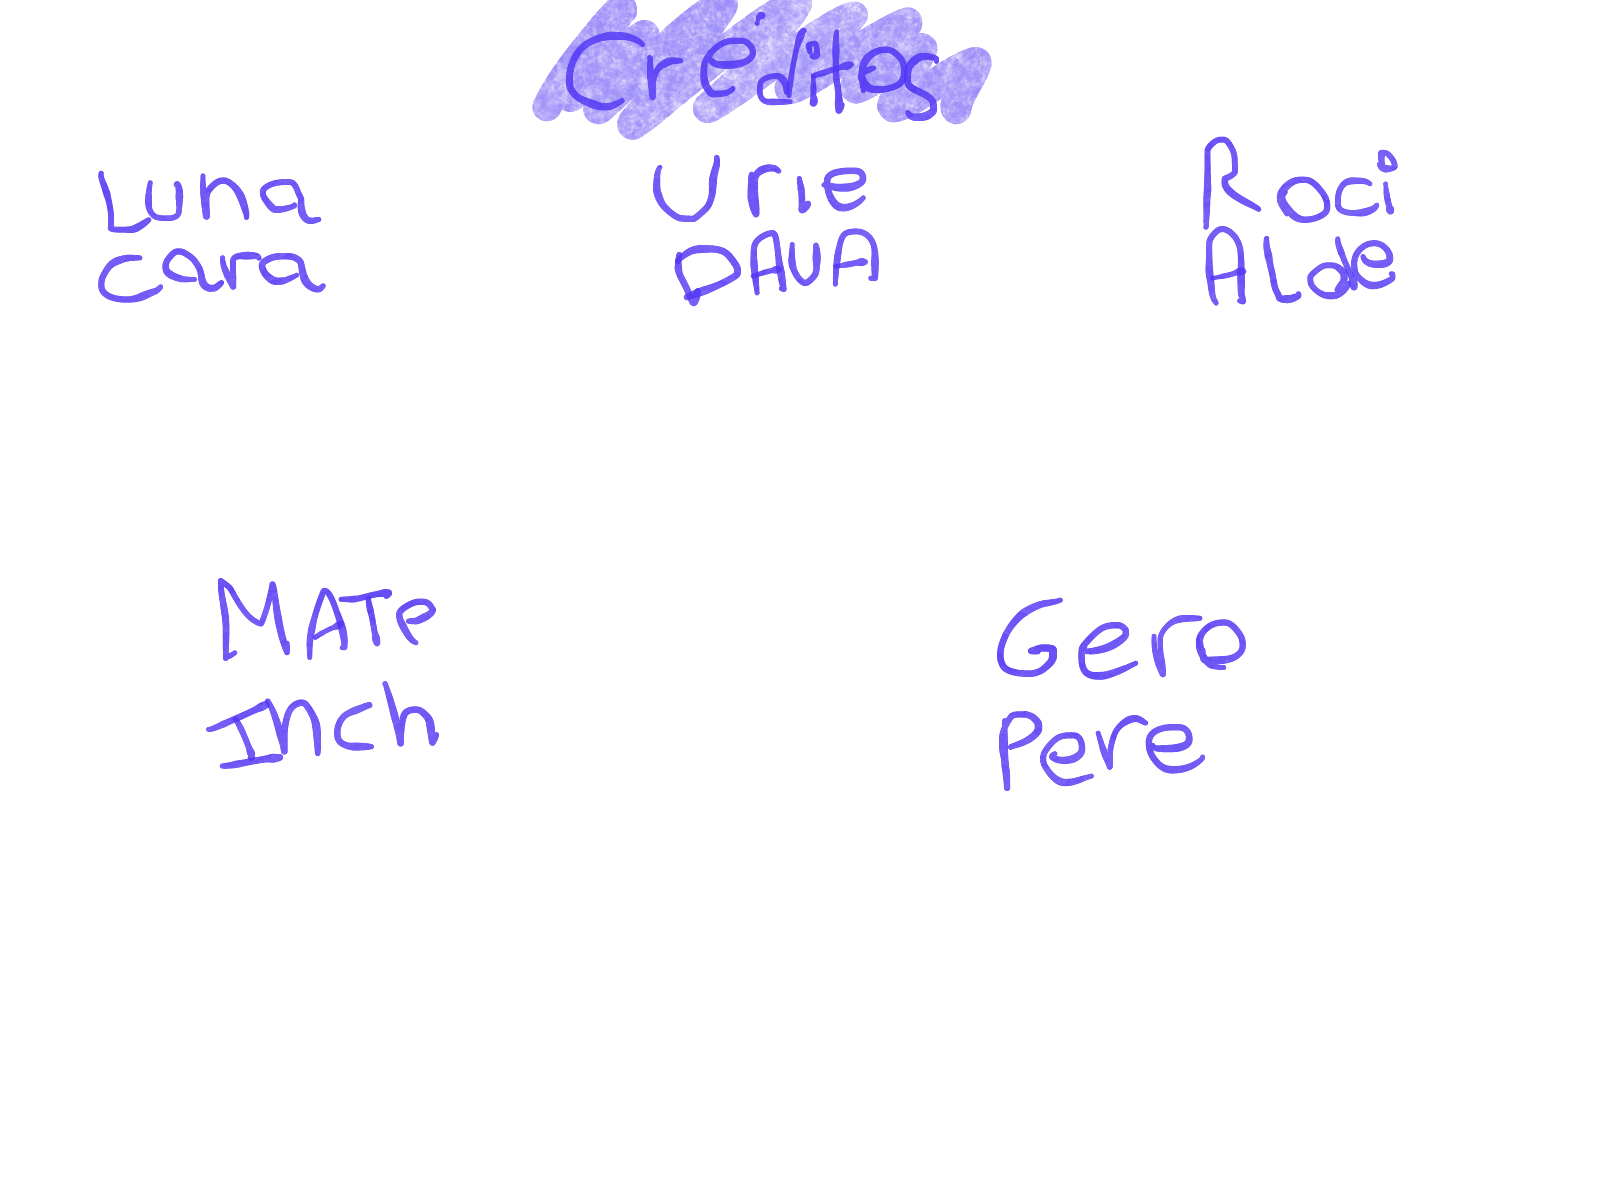 Créditos
Luna
cara
Urie
DAVA
Roci
ALde
MATe
Inch
Gero
Pere